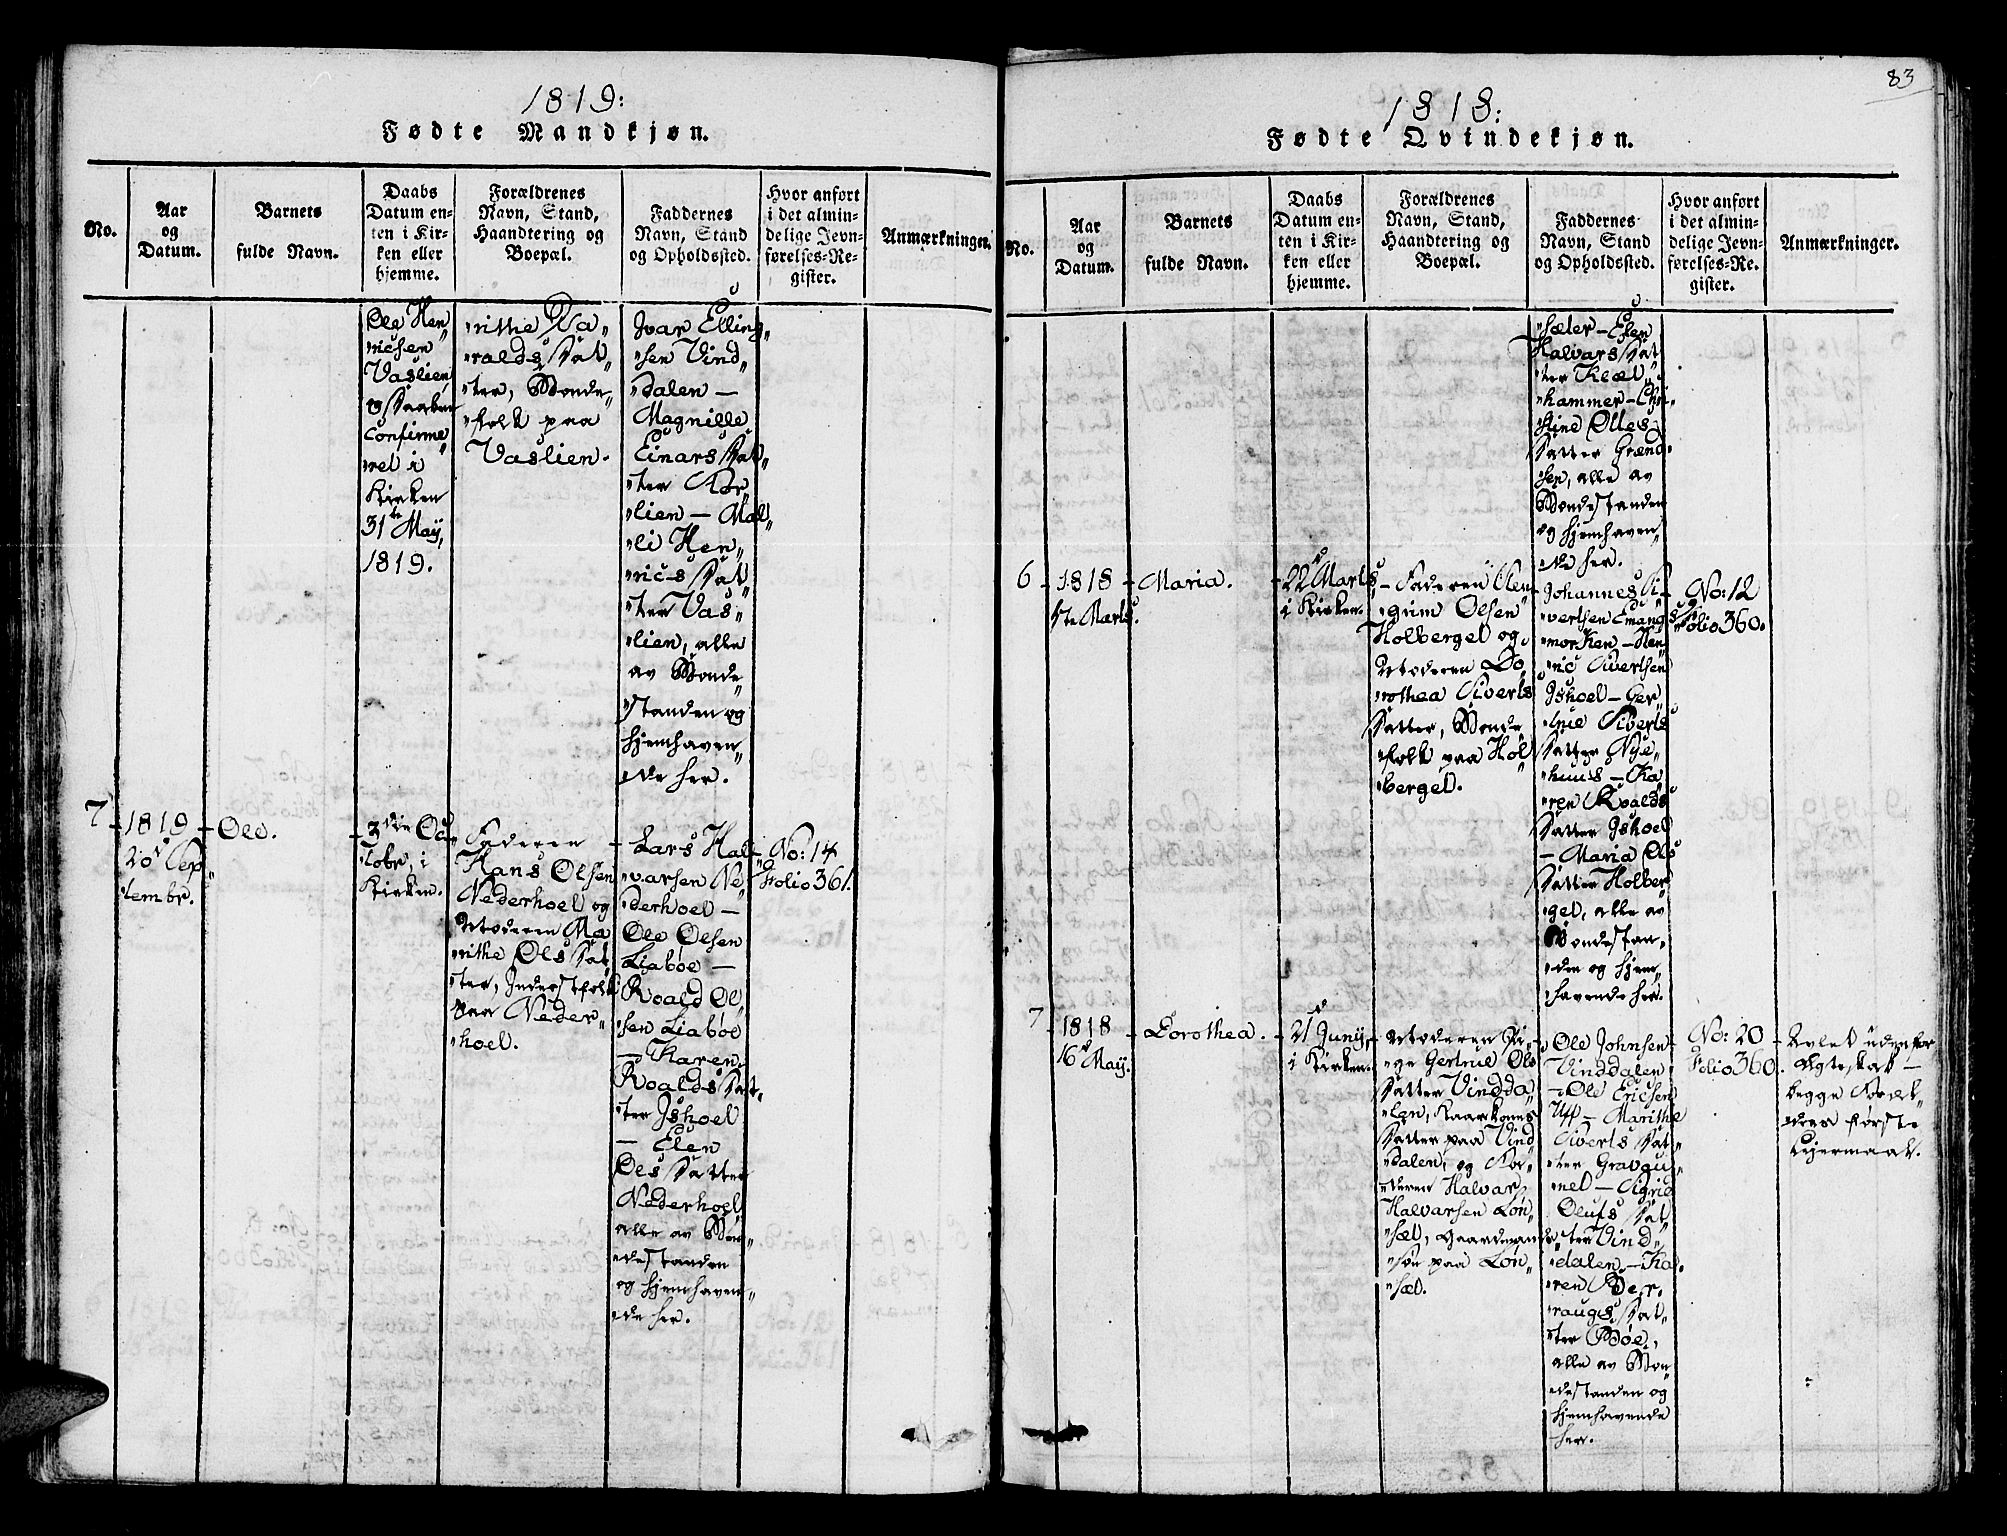 1819:
Fødte Mandkjøn.
No.
Aar
og
Datum.
Barnets
fulde Navn.
Daabs
Datum en-
ten i Kir-
ken eller
hjemme.
Forældrenes
Navn, Stand,
Haandtering og
Boepæl.
Faddernes
Navn, Stand
og Opholdssted.
Hvor anført
i det almin-
delige Jevn-
førelses-Re-
gister.
Anmærkninger.
Ole Hen„
„ricsen
Vaslien,
og Daaben
Confirme„
„ret i
Kirken
31te Maij,
1819.
„rithe
„ralds Dat„
„ter, Bonde„
„folk paa
Vaslien.
Ivar Elling„
„sen Vind„
„dalen —
Magnille
Einars Dat„
„ter Kor„
„lien — Mal„
„li Hen„
„rics Dat„
„ter Vas„
„lien, alle
av Bonde„
„standen og
hjemhaven„
„de her.
7
1819
20d Sep„
„tembr.
Ole.
3die Oc„
„tobr. i
Kirken.
Faderen
Hans Olsen
Nederhoel og
Moderen Ma„
„rithe Ols Dat„
„ter, Inderstfolk
paa Neder„
„hoel.
Lars Hal„
„varsen Ne„
„derhoel —
Ole Olsen
Liabøe —
Roald Ol„
„sen Liabøe
— Karen
Roalds Dat„
„ter Ishoel
— Elen
Ols Datter
Nederhoel
alle av Bon„
„destanden
og hjemhaven„
„de her.
No: 14
Folio 361.
83
1818:
Fødte Qvindekjøn.
No.
Aar
og
Datum.
Barnets
fulde Navn.
Daabs
Datum en-
ten i Kir-
ken eller
hjemme.
Forældrenes
Navn, Stand,
Haandtering og
Boepæl.
Faddernes
Navn, Stand
og Opholdssted.
Hvor anført
i det almin-
delige Jevn-
førelses-Re-
gister.
Anmærkninger.
„sæter — Elen
Halvars Dat„
„ter
„hammer — Chri„
„stine Olles„
Datter Grænd„
„sen, alle av
Bondestanden
og hjemhaven„
„de her.
6
1818
Marts.
Maria.
22d Marts,
i Kirken.
Faderen
„gum Olsen
Holbergel og
Moderen Do„
„rothea Siverts
Datter, Bonde„
„folk paa Hol„
„bergel.
Johannes Si„
„vertsen
— Hen„
„ric Sivertsen
Ishoel — Ger„
„true Siverts
Datter Nye„
„huus — Ka„
„ren Roalds
Datter Ishoel
— Maria Ols
Datter Holber„
„gel, alle av
Bondestan„
„den og hjem„
„havende her.
No: 12
Folio 360.
7
1818
16d Maij.
Dorothea.
21d Junij,
i Kirken.
Moderen Pi„
„ge Gertrue Ols
Datter Vindda„
„len, Kaarkones
Datter paa Vind„
„dalen, og Fa„
„deren Halvar
Halvarsen Løn„
„sæt, Gaardmands
„søn paa Løn„
„sæt.
Ole Johnsen
Vinddalen
— Ole Ericsen
— Marithe
Siverts Dat„
„ter Gravgu„
„nel — Sigrid
Olufs Dat„
„ter Vind„
„dalen — Ka„
„ren Ber„
„raugs Dat„
„ter Bøe,
alle av Bon„
„destanden og
hjemhavende
her.
No: 20
Folio 360.
Avlet udenfor
Ægteskab —
begge Foræl„
„dres første
Leiermaal.